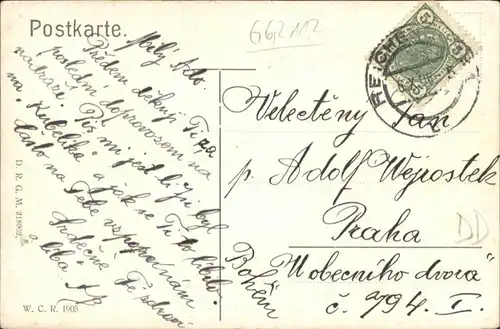 Postkarte.
G6212
Milý Ado.
Předem děkuji Ti za
poslední doprovozem na
nádraží. Piš mi jest li jsi byl
na "Kubelíka" a jak se Ti to líbilo.
Často na Tebe vzpomínám
Srdečně Tě zdraví
D. R. G. M. 218802.
W. C. R. 1905
5
REICHE
Velectěný Pan
p. Adolf Wejrostek
Praha
U obecního dvora"
č. 794. I.
Bohém
DD